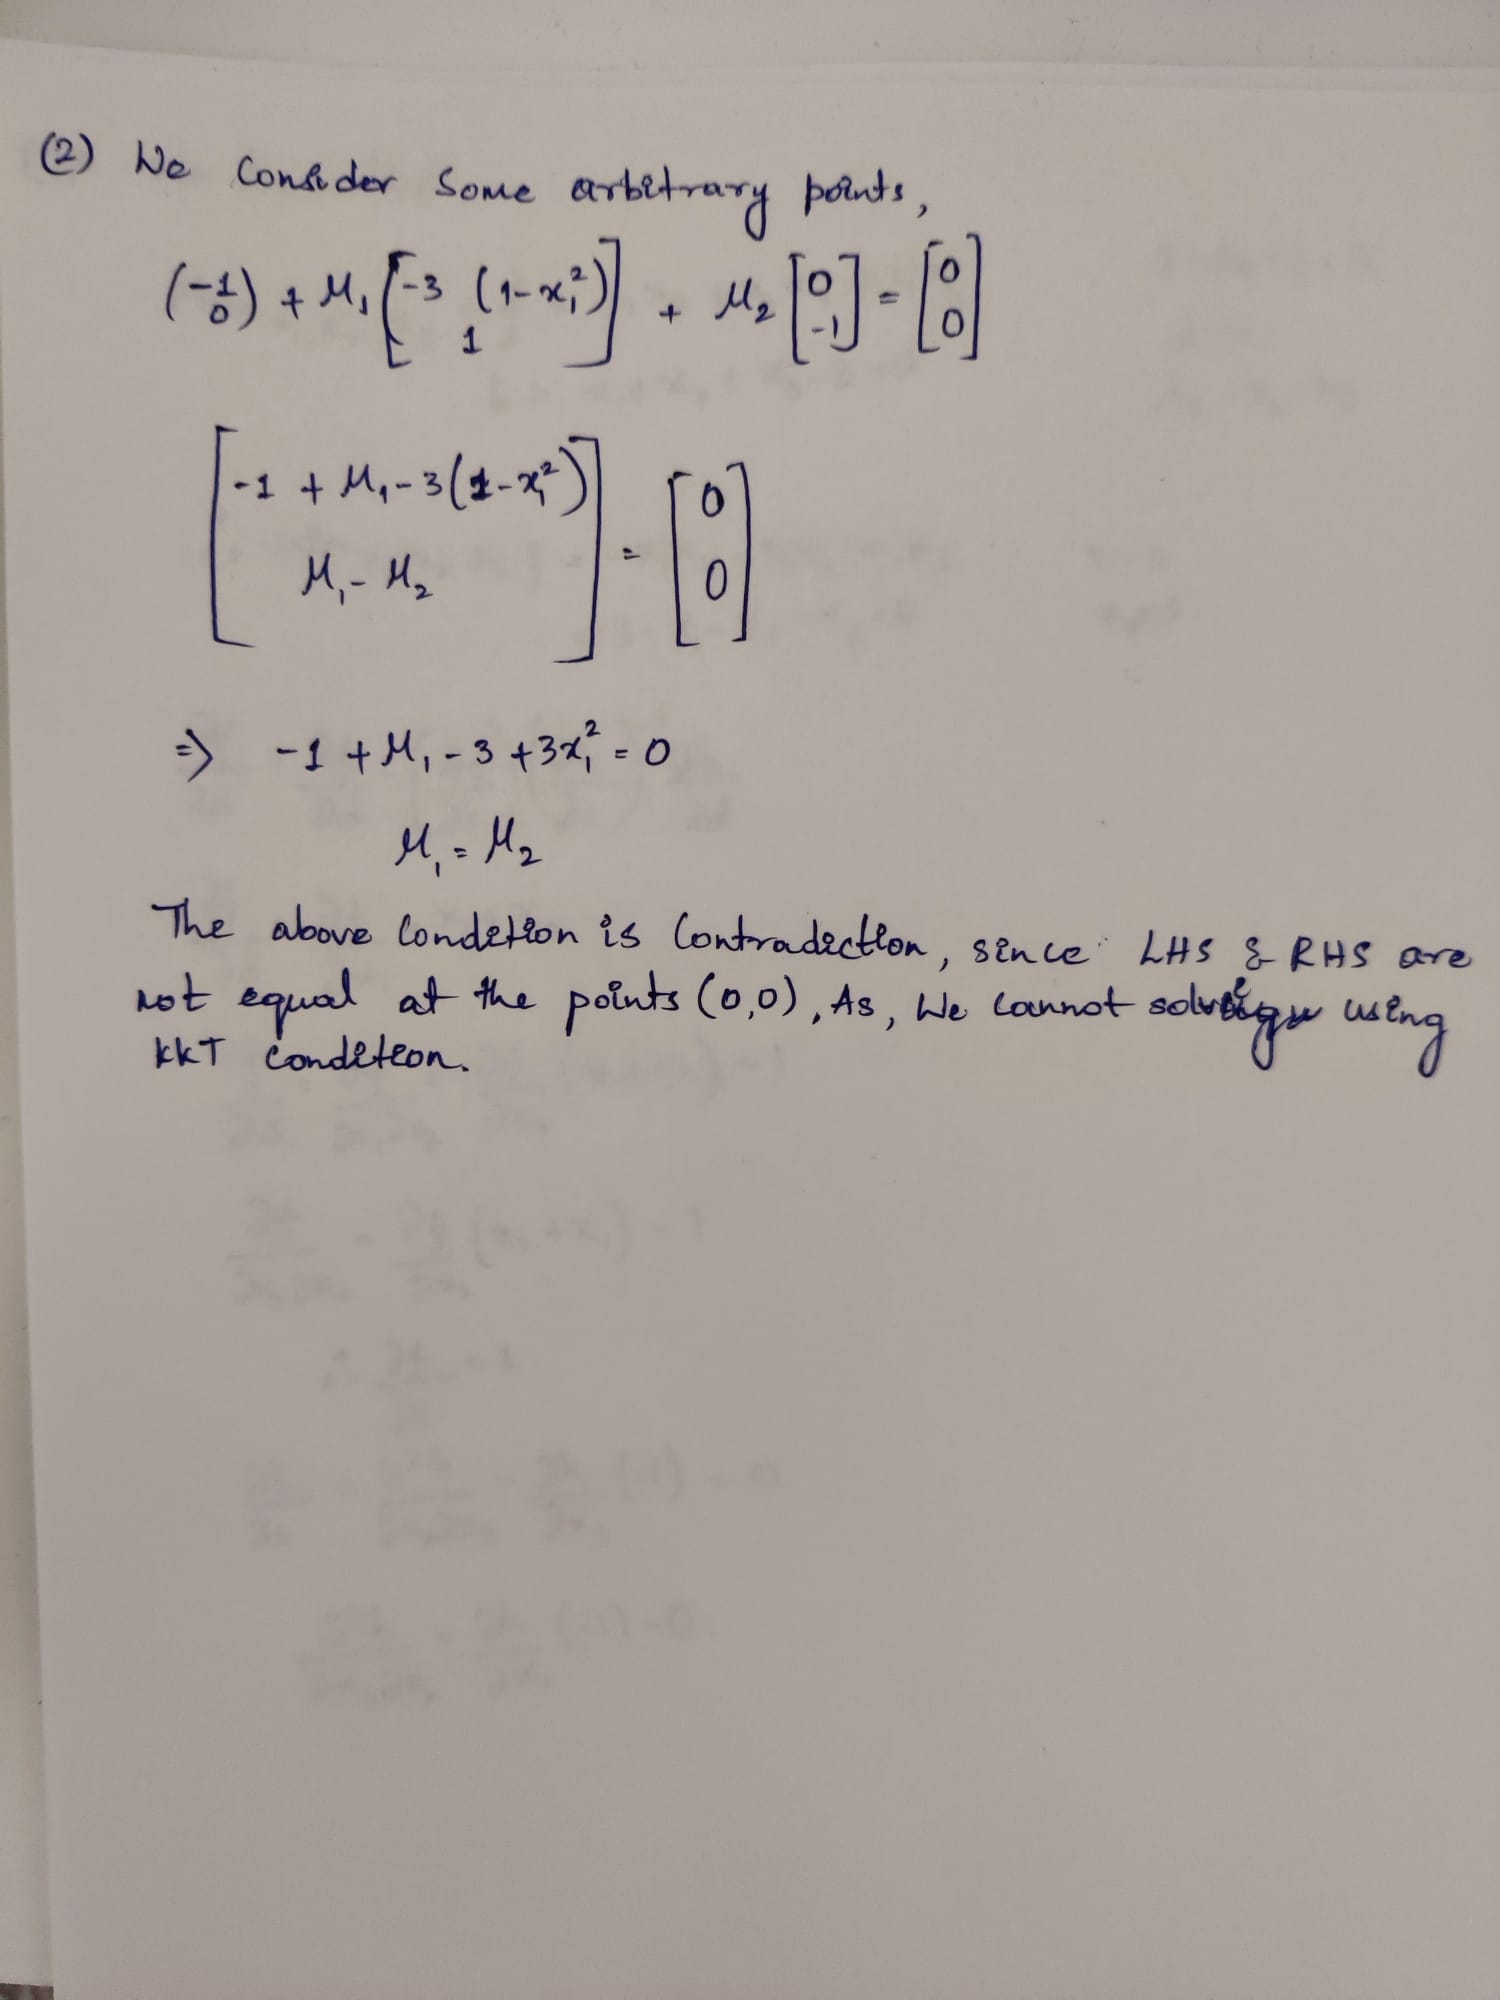 (2) We Consider Some arbitrary points,
(-1 0) + M₁ [-3 (1-x₁²) 1] + M₂ [0 -1] = [0 0]
[-1 + M₁ - 3(1-x₁²) M₁ - M₂] = [0 0]
=> -1 + M₁ - 3 + 3x₁² = 0
M₁ = M₂
The above Condition is Contradiction, since LHS & RHS are
not equal at the points (0,0), As, We Cannot using
KKT Condition.